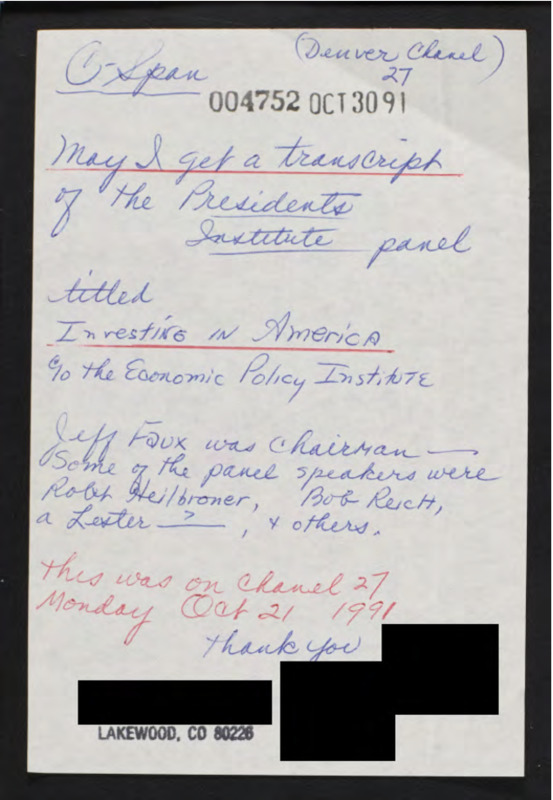 (Denver Chanel)
C-Span 27
004752 OCT 30 91
May I get a transcript
of the Presidents
Institute panel
titled
Investing in America
c/o the Economic Policy Institute
Jeff Faux was Chairman —
Some of the panel speakers were
Robt Heilbroner, Bob Reich,
a Lester ?, & others.
this was on Chanel 27
Monday Oct 21 1991
thank you
LAKEWOOD, CO 80226